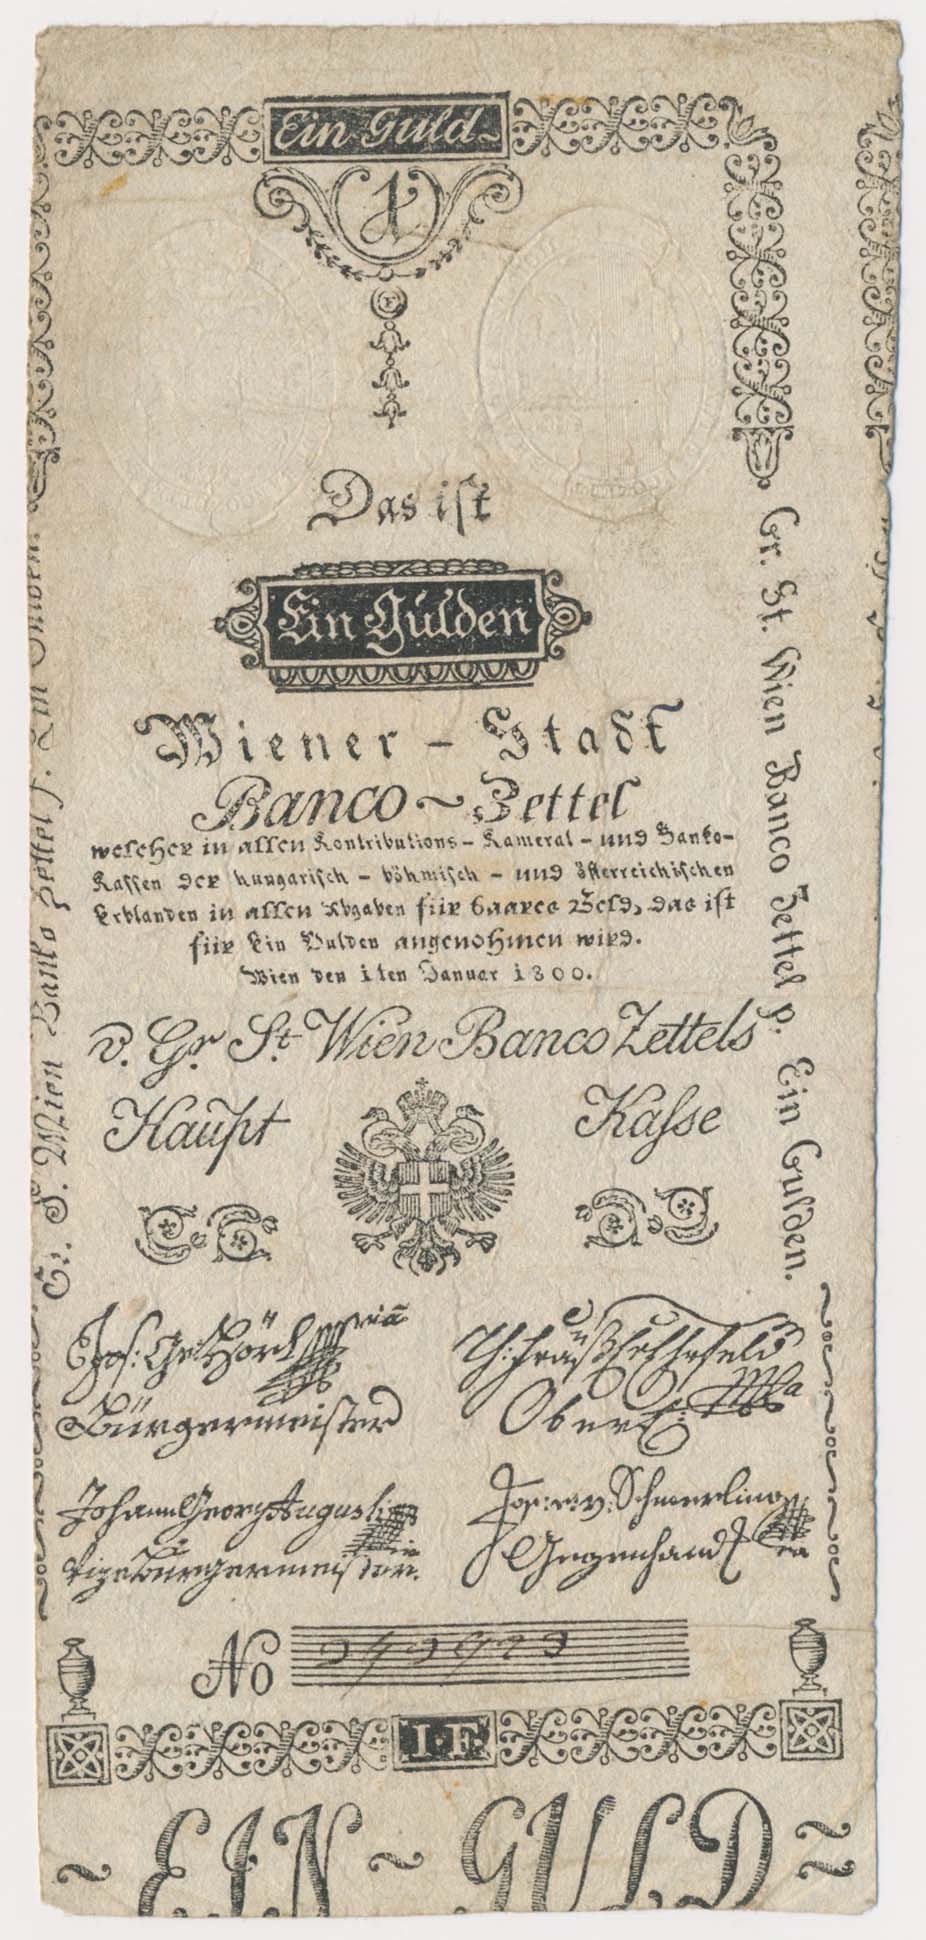 Ein Guld~
1
F
Das ist
Ein Gulden
Wiener - Stadt
Banco ~ Zettel
welcher in allen Kontributions - Kameral - und Banko-
Kassen der hungarisch - böhmisch - und österreichischen
Erblanden in allen Abgaben für baares Geld, das ist
für Ein Gulden angenohmen wird.
Wien den 1ten Januar 1800.
v. Gr. St. Wien Banco Zettels
Haupt Kasse
Bürgermeister
Johann Georg Augusti
vizeBürgermeister.
v. Schmerling
Gegenhand
No
I·F
~ EIN ~ GULD ~
Gr. St. Wien Banco Zettel p. Ein Gulden.
Gr. S. Wien Banko Zettel